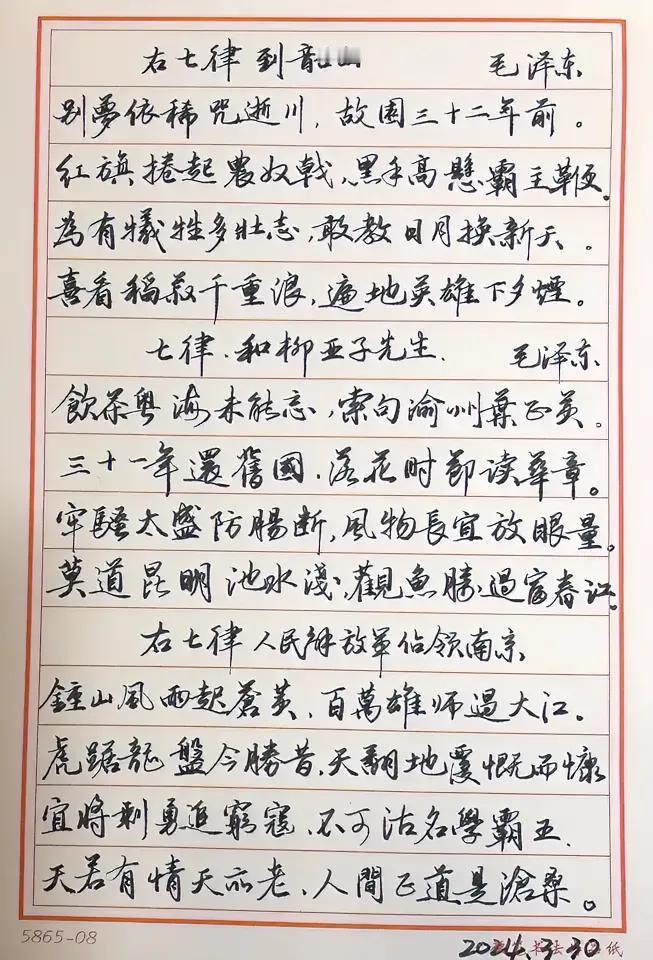 右七律 到韶山 毛泽东
别夢依稀咒逝川，故園三十二年前。
红旗捲起農奴戟，黑手高懸霸主鞭。
為有犧牲多壮志，敢教日月换新天。
喜看稲菽千重浪，遍地英雄下夕煙。
七律．和柳亚子先生． 毛泽东
飲茶粤海未能忘，索句渝州葉正黄。
三十一年還舊國．落花时節读華章。
牢騷太盛防腸断，風物長宜放眼量。
莫道昆明池水淺，觀魚勝過富春江。
右七律 人民解放军佔领南京
鍾山風雨起蒼黄，百萬雄师過大江。
虎踞龍盤今勝昔，天翻地覆慨而慷
宜將剩勇追窮寇，不可沽名學霸王．
天若有情天亦老，人間正道是滄桑。
5865-08
2024.3.30
书法 纸